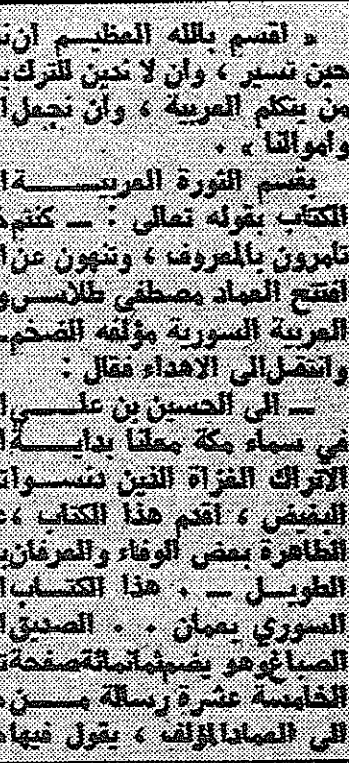 « اقسم بالله العظيم أن ن
حين تسير ، وأن لا ندين للترك ب
من يتكلم العربية ، وأن نجعل ا
واموالنا » .
بقسم الثورة العربيـــــــة ا
الكتاب بقوله تعالى : ــ كنتم خ
تامرون بالمعروف ، وتنهون عن ا
افتتح العماد مصطفى طلاس و
العربية السورية مؤلفه الضخم
وانتقل الى الاهداء فقال :
ــ الى الحسين بن علـــي ا
في سماء مكة معلنا بدايـــة ا
الاتراك الغزاة الذين
البغيض ، اقدم هذا الكتاب ، ع
الطاهرة بعض الوفاء والعرفان ي
الطويـــل ــ . هذا الكتـــاب ا
السوري بعمان . . الصديق ا
الصباغ وهو يضم ثمانمائة صفحة ت
الخامسة عشرة رسالة مـــن
الى العماد المؤلف ، يقول فيها